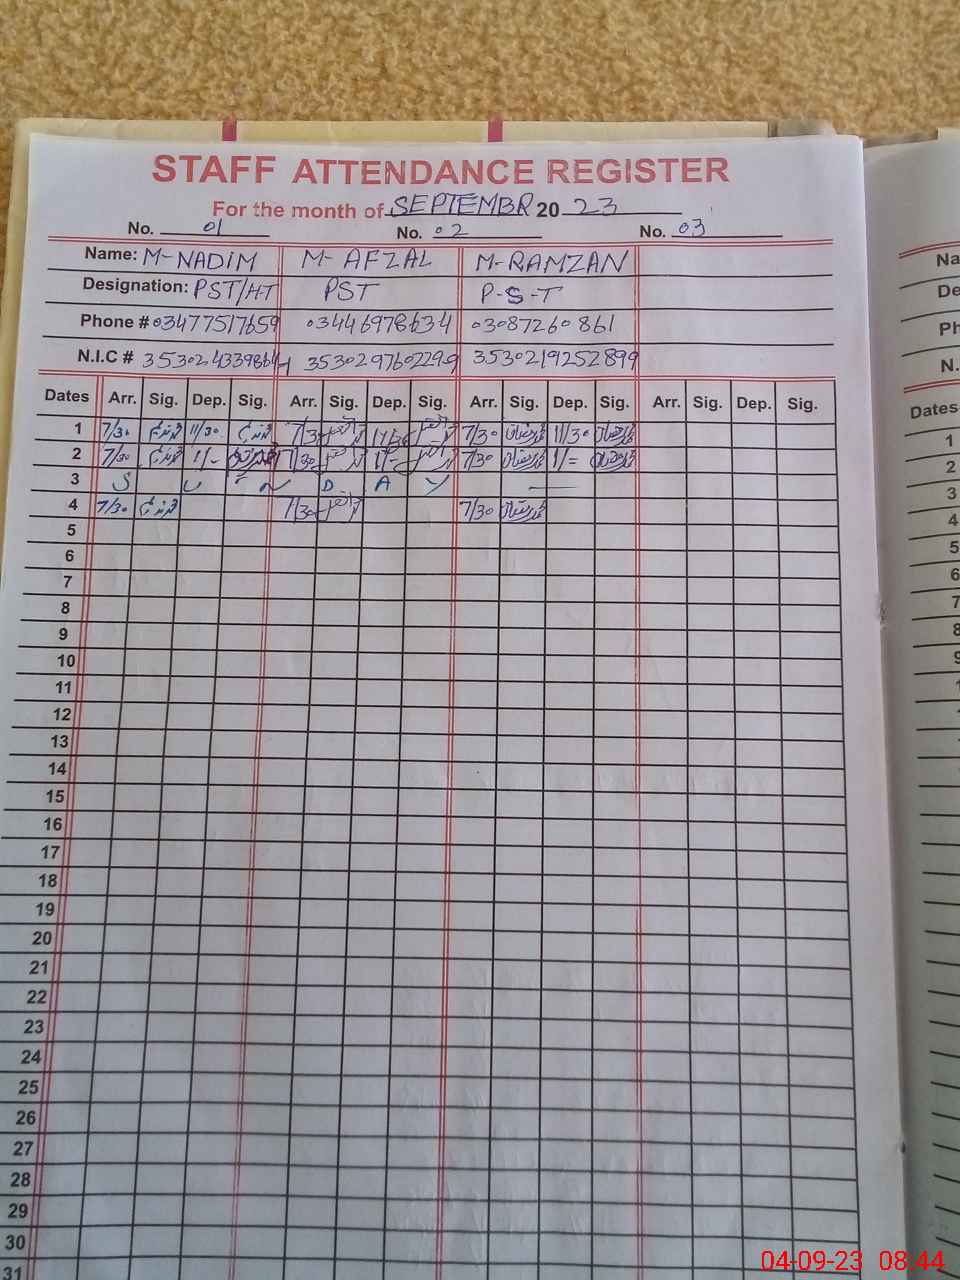 STAFF ATTENDANCE REGISTER
For the month of SEPTEMBR 2023
No. 01 No. 02 No. 03
Name: M-NADIM M- AFZAL M-RAMZAN Na
Designation: PST/HT PST P-S-T De
Phone # 03477517659 03446978634 03087260861 Ph
N.I.C # 3530297602299 3530219252899 N.
Dates Arr. Sig. Dep. Sig. Arr. Sig. Dep. Sig. Arr. Sig. Dep. Sig. Arr. Sig. Dep. Sig. Dates
1 7/30 11/30 7/30 7/30 محمد رمضان 11/30 محمد رمضان 1
2 7/30 11/- 7/30 11/- 7/30 محمد رمضان 11/= محمد رمضان 2
3 S U N D A Y 3
4 7/30 7/30 7/30 محمد رمضان 4
5 5
6 6
7 7
8 8
9 9
10
11
12
13
14
15
16
17
18
19
20
21
22
23
24
25
26
27
28
29
30
31
04-09-23 08:44